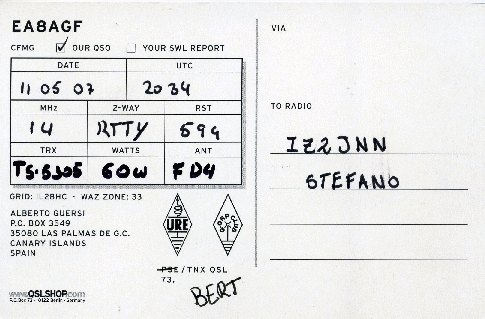 EA8AGF
CFMG ✓ OUR QSO YOUR SWL REPORT
DATE UTC
11 05 07 2034
MHz 2-WAY RST
14 RTTY 599
TRX WATTS ANT
60W FD4
GRID: IL28HC - WAZ ZONE: 33
ALBERTO GUERSI
P.O. BOX 3549
35080 LAS PALMAS DE G.C.
CANARY ISLANDS
SPAIN
URE
PSE / TNX QSL
73,
BERT
www.QSLSHOP.com
P.O.Box 73 - 0122 Berlin - Germany
VIA
TO RADIO
IZ2JNN
STEFANO